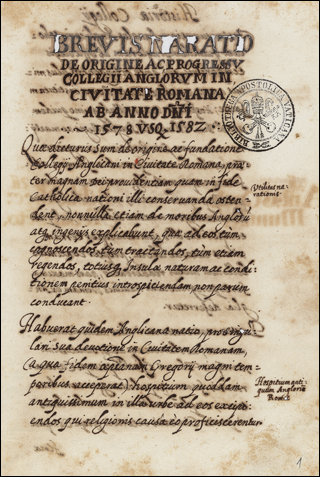 BREVIS NARATIO
DE ORIGINE AC PROGRESSV
COLLEGII ANGLORVM IN
CIVITATE ROMANA
AB ANNO DNI
1578. VSQ. 1582.
Quae dicturus sum de origine ac fundatione
Collegij Anglicani in Civitate Romana, prae-
ter magnam Dei providentiam quam in fide
Catholica nationi illi conservanda osten-
dent, nonnulla etiam de moribus Anglorũ
atq; ingenijs explicabunt, quae ad eos tum
cognoscendos, tum tractandos, tum etiam
regendos, totiusq; Insulae naturam ac condi-
tionem penitus introspiciendam non parum
conducant.
Utilitas nar-
rationis.
Habuerat quidem Anglicana natio, pro singu-
lari sua devotione in Civitatem Romanam,
a qua fidem Gregorij magni tem-
poribus acceperat, hospitium quoddam
antiquissimum in illa urbe ad eos excipi-
endos qui religionis causa eo proficiscerentur
Hospitium anti-
quum Angloru
Romae
BIBLIOTHECA APOSTOLICA VATICANA
1